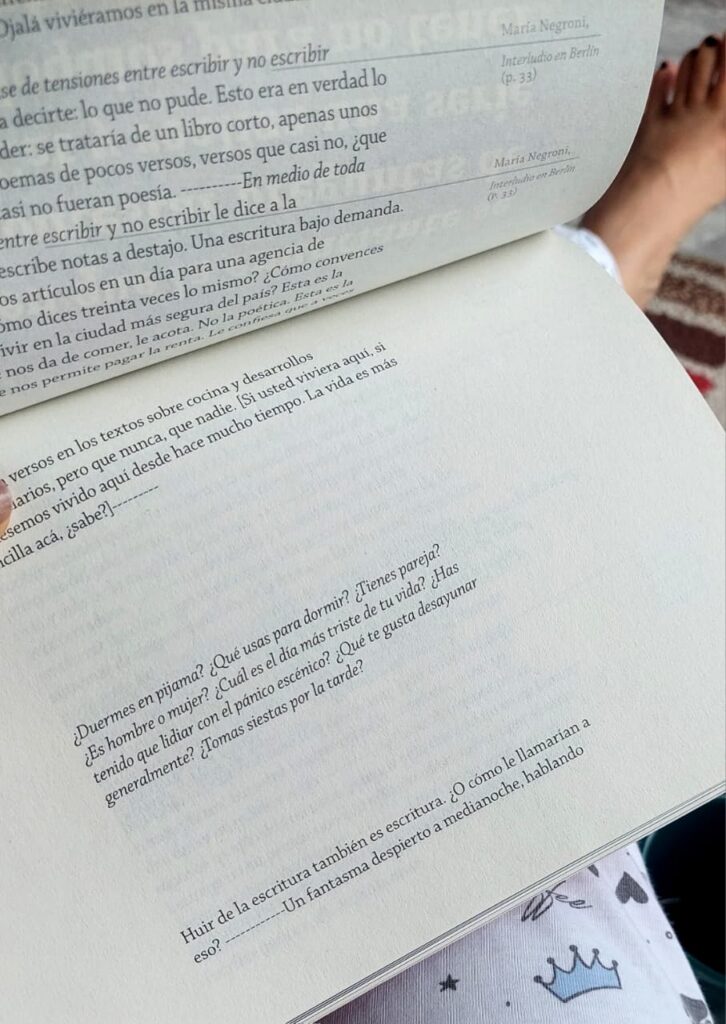 Ojalá viviéramos en la misma
María Negroni,
Interludio en Berlín
(p. 33)
se de tensiones entre escribir y no escribir
a decirte: lo que no pude. Esto era en verdad lo
der: se trataría de un libro corto, apenas unos
oemas de pocos versos, versos que casi no, ¿que
asi no fueran poesía. ----------En medio de toda
María Negroni,
Interludio en Berlín
(p. 33)
entre escribir y no escribir le dice a la
escribe notas a destajo. Una escritura bajo demanda.
os artículos en un día para una agencia de
ómo dices treinta veces lo mismo? ¿Cómo convences
ivir en la ciudad más segura del país? Esta es la
nos da de comer, le acota. No la poética. Esta es la
e nos permite pagar la renta. Le confiesa que a veces
versos en los textos sobre cocina y desarrollos
iarios, pero que nunca, que nadie. [Si usted viviera aquí, si
esemos vivido aquí desde hace mucho tiempo. La vida es más
ncilla acá, ¿sabe?]---------
¿Duermes en pijama? ¿Qué usas para dormir? ¿Tienes pareja?
¿Es hombre o mujer? ¿Cuál es el día más triste de tu vida? ¿Has
tenido que lidiar con el pánico escénico? ¿Qué te gusta desayunar
generalmente? ¿Tomas siestas por la tarde?
Huir de la escritura también es escritura. ¿O cómo le llamarían a
eso? -----------Un fantasma despierto a medianoche, hablando